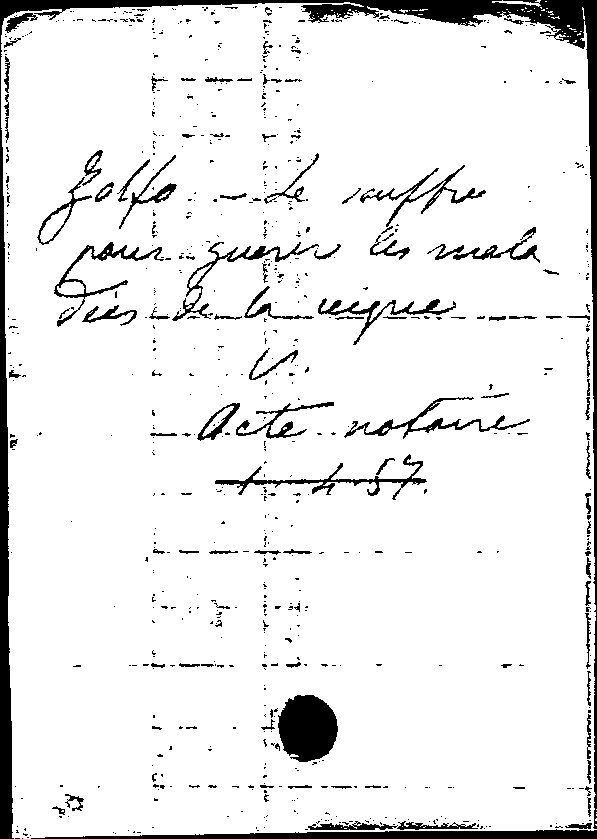 Zolfo - Le suffre
pour guerir les mala-
dies de la vigne
V.
Acte notaire
1 4 57.